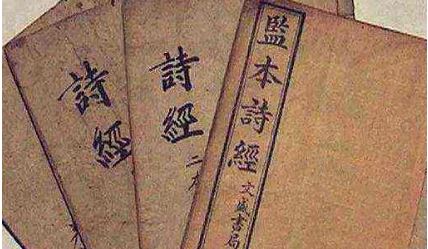 詩經
詩經
二
監本詩經 文盛書局